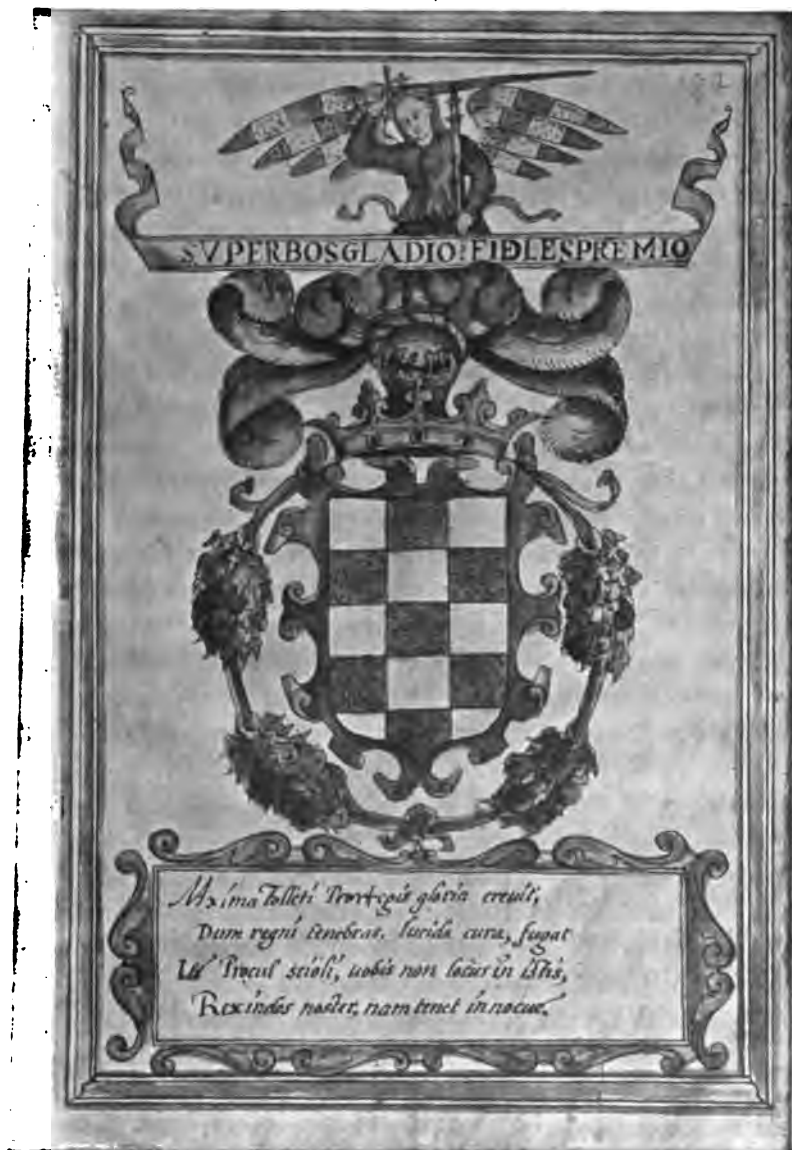 SVPERBOSGLADIO:FIDLESPREMIO
Maxima Tolleti Prorregis gloria creuit,
Dum regni tenebras, lucida cura, fugat
Ite Procul scioli, uobis non locus in istis,
Rex indos noster, nam tenet innocue.